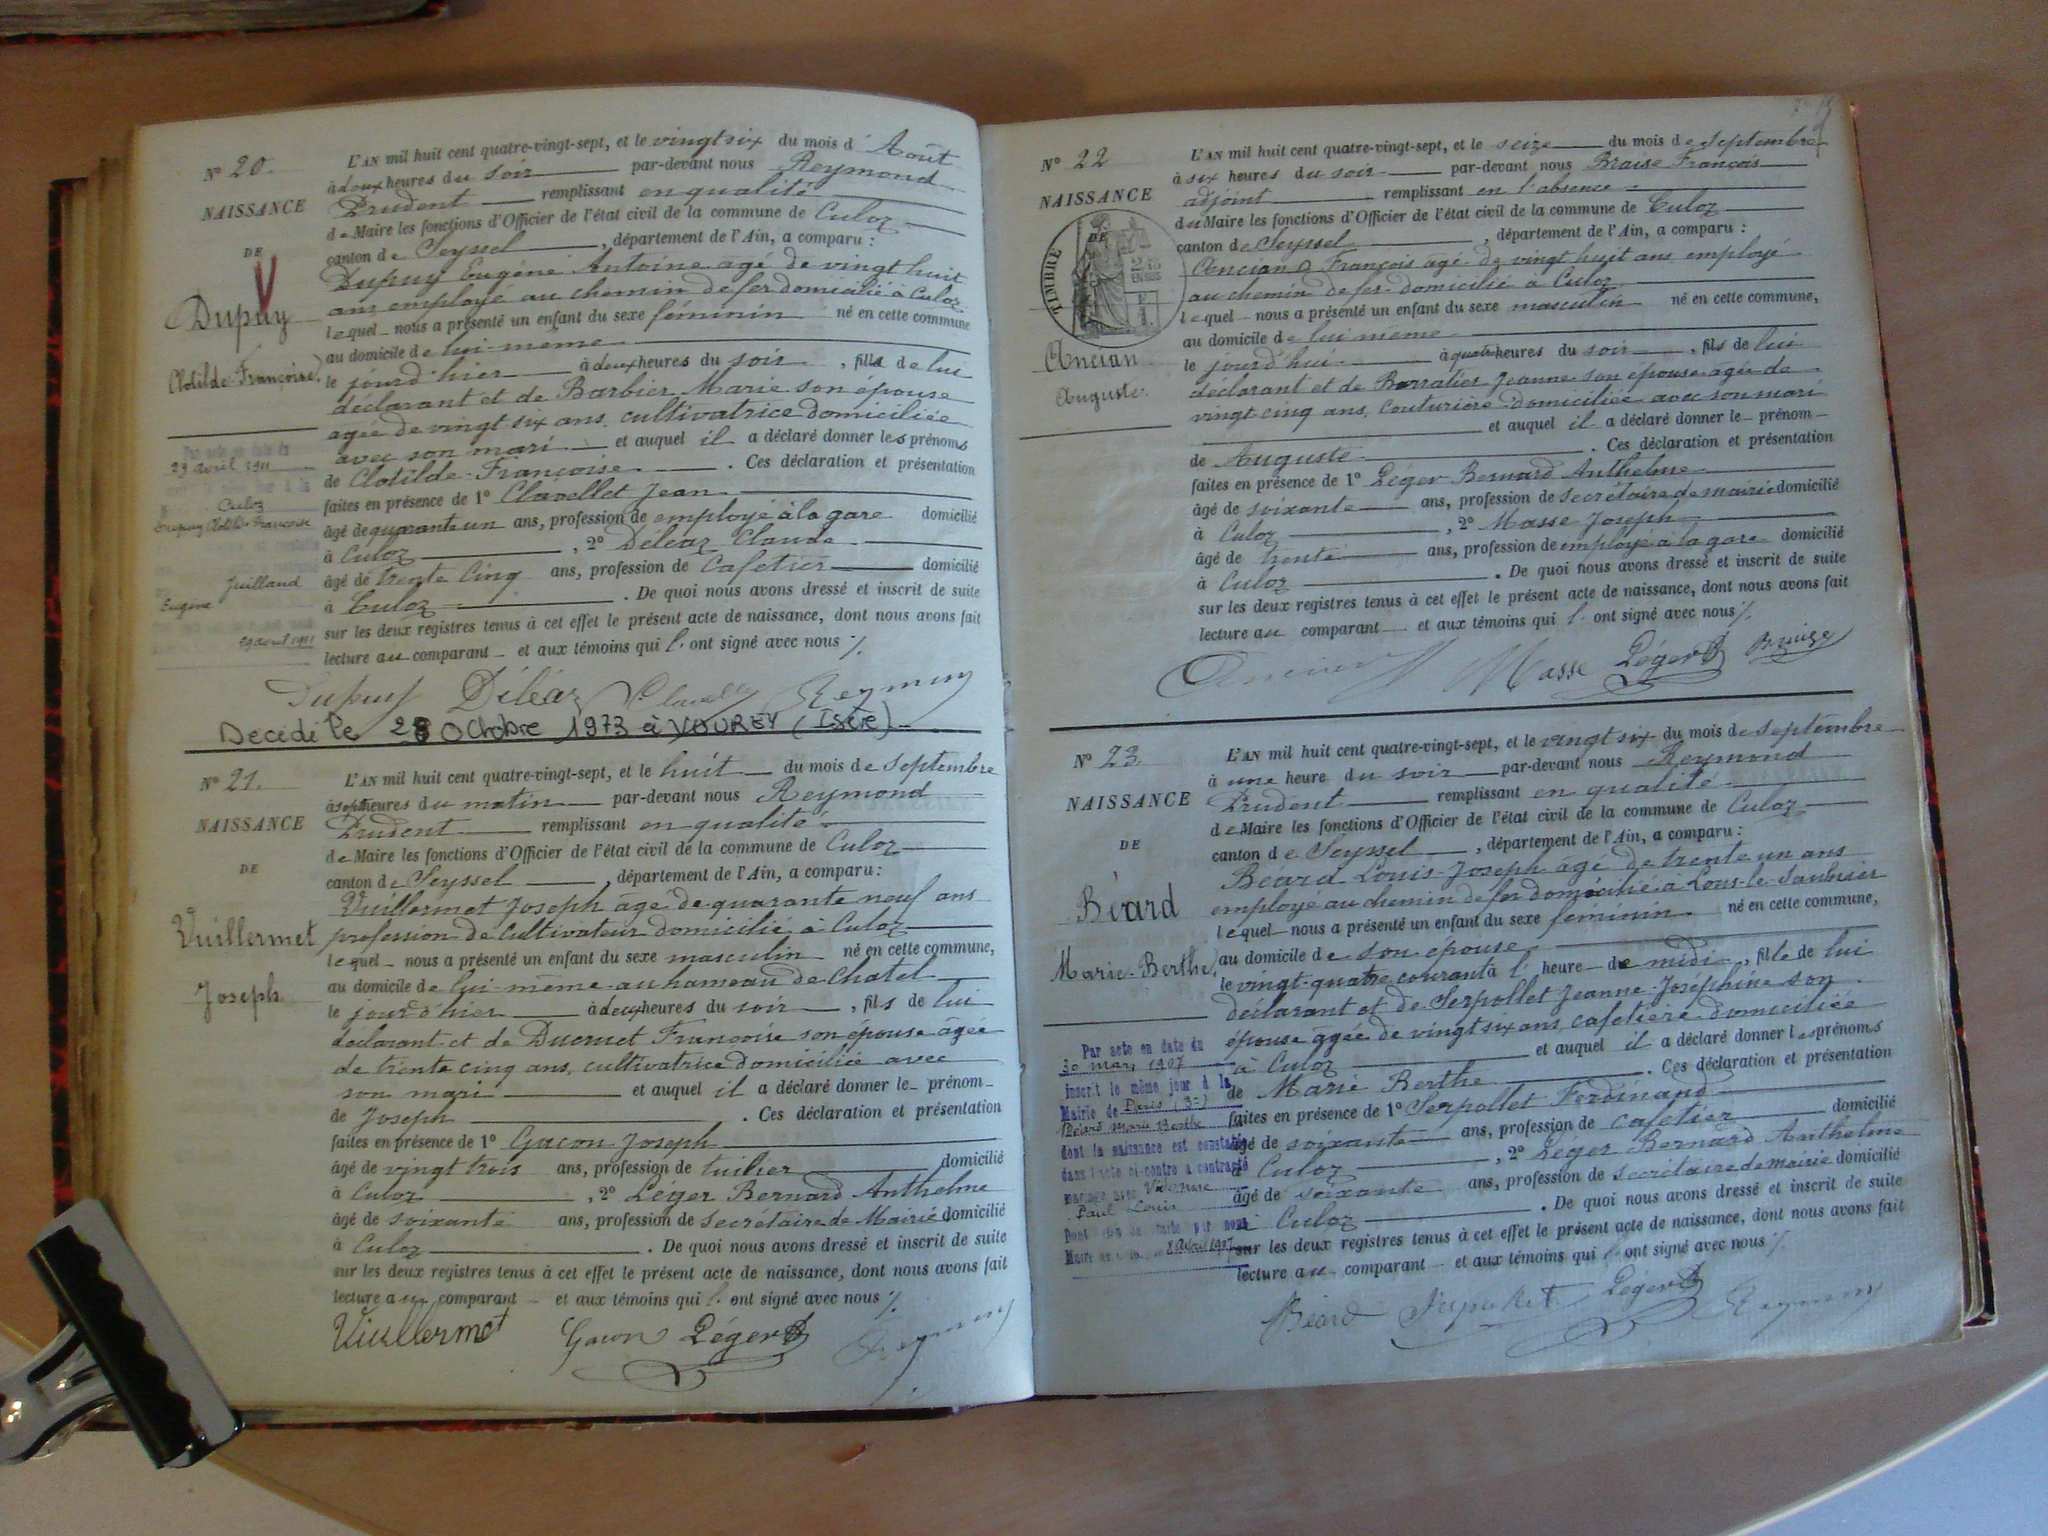 N° 20.
NAISSANCE
DE
Dupuy
Clotilde-Françoise
L'AN mil huit cent quatre-vingt-sept, et le vingt six du mois d'Août
à deux heures du soir par-devant nous Reymond
Prudent remplissant en qualité
de Maire les fonctions d'Officier de l'état civil de la commune de Culoz
canton de Seyssel, département de l'Ain, a comparu :
Dupuy Eugène Antoine agé de vingt huit
ans employé au chemin de fer domicilié à Culoz
lequel nous a présenté un enfant du sexe féminin né en cette commune
au domicile de lui-même
le jourd'hier à deux heures du soir, fille de lui
déclarant et de Barbier Marie son épouse
agée de vingt six ans, cultivatrice domiciliée
avec son mari et auquel il a déclaré donner les prénoms
de Clotilde-Françoise. Ces déclaration et présentation
faites en présence de 1° Clavellet Jean
âgé de quarante un ans, profession de employé à la gare domicilié
à Culoz, 2° Déléaz Claude
âgé de trente cinq ans, profession de Cafetier domicilié
à Culoz. De quoi nous avons dressé et inscrit de suite
sur les deux registres tenus à cet effet le présent acte de naissance, dont nous avons fait
lecture au comparant et aux témoins qui l'ont signé avec nous
29 avril 1911
Culoz
Dupuy Clotilde Françoise
Juilland
Eugène
29 avril 1911
Dupuy Déléaz Reymond
Decédé le 28 Octobre 1973 à VOUREY (Isère)
N° 21.
NAISSANCE
DE
Vuillermet
Joseph
L'AN mil huit cent quatre-vingt-sept, et le huit du mois de septembre
à sept heures du matin par-devant nous Reymond
Prudent remplissant en qualité
de Maire les fonctions d'Officier de l'état civil de la commune de Culoz
canton de Seyssel, département de l'Ain, a comparu :
Vuillermet Joseph agé de quarante neuf ans
profession de cultivateur domicilié à Culoz
lequel nous a présenté un enfant du sexe masculin né en cette commune,
au domicile de lui-même au hameau de Chatel
le jourd'hier à deux heures du soir, fils de lui
déclarant et de Ducruet Françoise son épouse âgée
de trente cinq ans, cultivatrice domiciliée avec
son mari et auquel il a déclaré donner le prénom
de Joseph. Ces déclaration et présentation
faites en présence de 1° Gacon Joseph
âgé de vingt trois ans, profession de tuilier domicilié
à Culoz, 2° Léger Bernard Anthelme
âgé de soixante ans, profession de secrétaire de Mairie domicilié
à Culoz. De quoi nous avons dressé et inscrit de suite
sur les deux registres tenus à cet effet le présent acte de naissance, dont nous avons fait
lecture au comparant et aux témoins qui l'ont signé avec nous
Vuillermet Gacon Léger Reymond
N° 22
NAISSANCE
DE
TIMBRE
Ancian
Auguste
L'AN mil huit cent quatre-vingt-sept, et le seize du mois de septembre
à six heures du soir par-devant nous Braise François
adjoint remplissant en l'absence
du Maire les fonctions d'Officier de l'état civil de la commune de Culoz
canton de Seyssel, département de l'Ain, a comparu :
Ancian François agé de vingt huit ans employé
au chemin de fer domicilié à Culoz
lequel nous a présenté un enfant du sexe masculin né en cette commune,
au domicile de lui même
le jourd'hui à quatre heures du soir, fils de lui
déclarant et de Barralier Jeanne son épouse agée de
vingt cinq ans, couturière domiciliée avec son mari
et auquel il a déclaré donner le prénom
de Auguste. Ces déclaration et présentation
faites en présence de 1° Léger Bernard Anthelme
âgé de soixante ans, profession de secrétaire de mairie domicilié
à Culoz, 2° Masse Joseph
âgé de trente ans, profession de employé à la gare domicilié
à Culoz. De quoi nous avons dressé et inscrit de suite
sur les deux registres tenus à cet effet le présent acte de naissance, dont nous avons fait
lecture au comparant et aux témoins qui l'ont signé avec nous
Ancian Masse Léger Braise
N° 23
NAISSANCE
DE
Béard
Marie-Berthe
L'AN mil huit cent quatre-vingt-sept, et le vingt six du mois de septembre
à une heure du soir par-devant nous Reymond
Prudent remplissant en qualité
de Maire les fonctions d'Officier de l'état civil de la commune de Culoz
canton de Seyssel, département de l'Ain, a comparu :
Béard Louis-Joseph âgé de trente un ans
employé au chemin de fer domicilié à Lons-le-Saunier
lequel nous a présenté un enfant du sexe féminin né en cette commune,
au domicile de son épouse
le vingt-quatre courant à l' heure de midi, fille de lui
déclarant et de Serpollet Jeanne-Joséphine son
épouse âgée de vingt six ans, cafetière domiciliée
à Culoz et auquel il a déclaré donner les prénoms
de Marie Berthe. Ces déclaration et présentation
faites en présence de 1° Serpollet Ferdinand
âgé de soixante ans, profession de cafetier domicilié
à Culoz, 2° Léger Bernard Anthelme
âgé de soixante ans, profession de secrétaire de mairie domicilié
à Culoz. De quoi nous avons dressé et inscrit de suite
sur les deux registres tenus à cet effet le présent acte de naissance, dont nous avons fait
lecture au comparant et aux témoins qui l'ont signé avec nous
Par acte en date du
30 mars 1907
inscrit le même jour à la
Mairie de Paris (3e)
Béard Marie Berthe
dont la naissance est constatée
dans l'acte ci-contre a contracté
mariage avec
Paul Louis
par nous
Maire 2 avril 1907
Béard Serpollet Léger Reymond